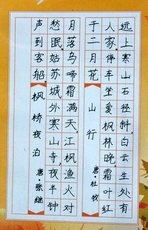 远上寒山石径斜白云生处有
人家停车坐爱枫林晚霜叶红
于二月花 山行 唐·杜牧
月落乌啼霜满天江枫渔火对
愁眠姑苏城外寒山寺夜半钟
声到客船 枫桥夜泊 唐·张继